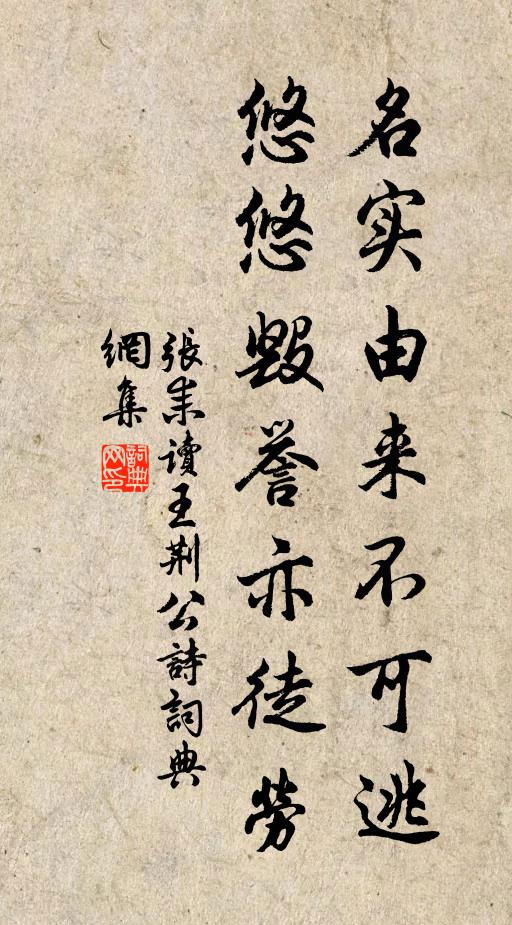 名实由来不可逃
悠悠毀誉亦徒劳
張耒讀王荆公詩詞典
網集
詞典
网印